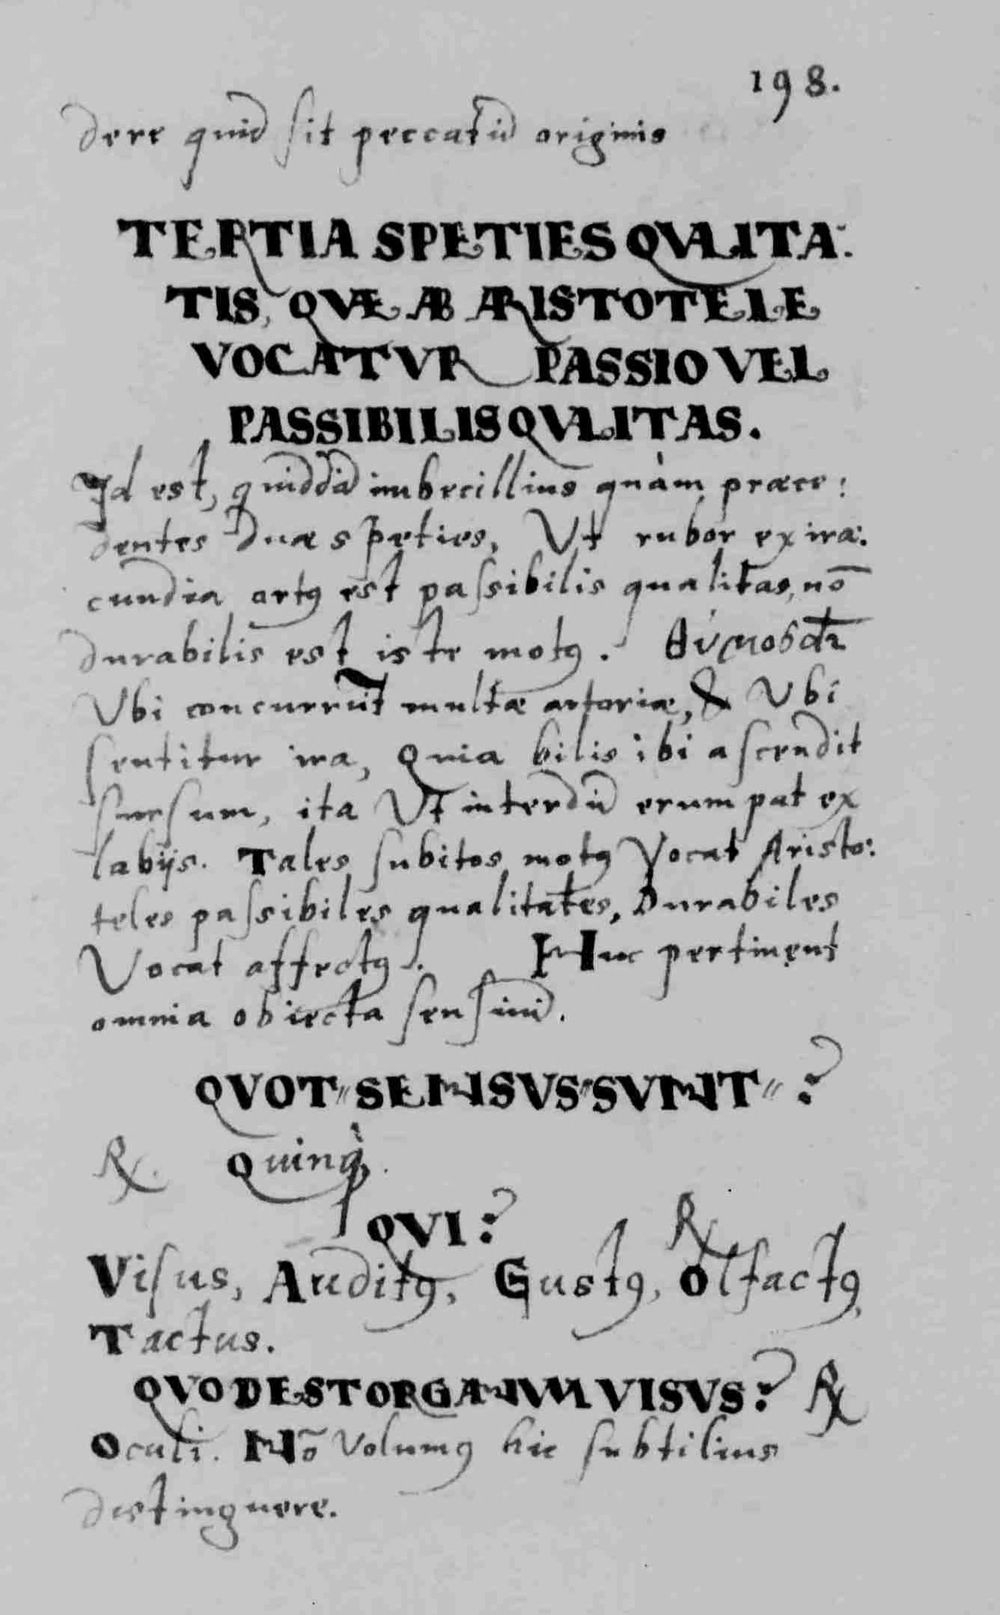 198.
dere quid sit peccatũ originis
TERTIA SPETIES QVALITA:
TIS, QVÆ AB ARISTOTELE
VOCATVR PASSIO VEL
PASSIBILIS QVALITAS.
Id est, quiddã imbecillius quàm præce:
dentes duæ spæties, Vt rubor ex ira:
cundia ortꝰ est paſsibilis qualitas, nõ
durabilis est iste motꝰ. θύμος dr̃
Vbi concurrũt multæ arteriæ, & Vbi
ſentitur ira, Quia bilis ibi aſcendit
ſurſum, ita Vt interdũ erumpat ex
labijs. Tales ſubitos motꝰ Vocat Aristo:
teles paſsibiles qualitates, Durabiles
Vocat affectꝰ. Huc pertinent
omnia obiecta ſenſuũ.
QVOT SENSVS SVNT?
℞. Quinqꝫ.
QVI? ℞
Viſus, Auditꝰ, Gustꝰ, Olfactꝰ,
Tactus.
QVOD EST ORGANVM VISVS? ℞
Oculi. Nõ Volumꝰ hic ſubtilius
distinguere.